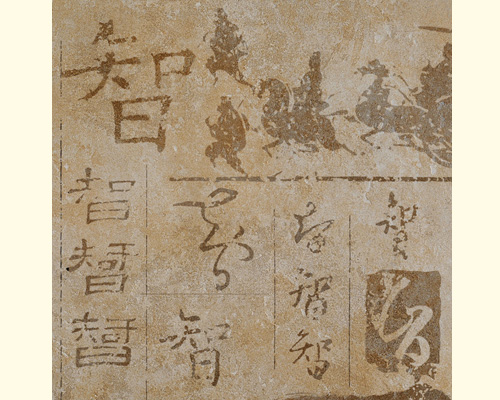 智
智
智
智
智
智
智
智
智
智
智